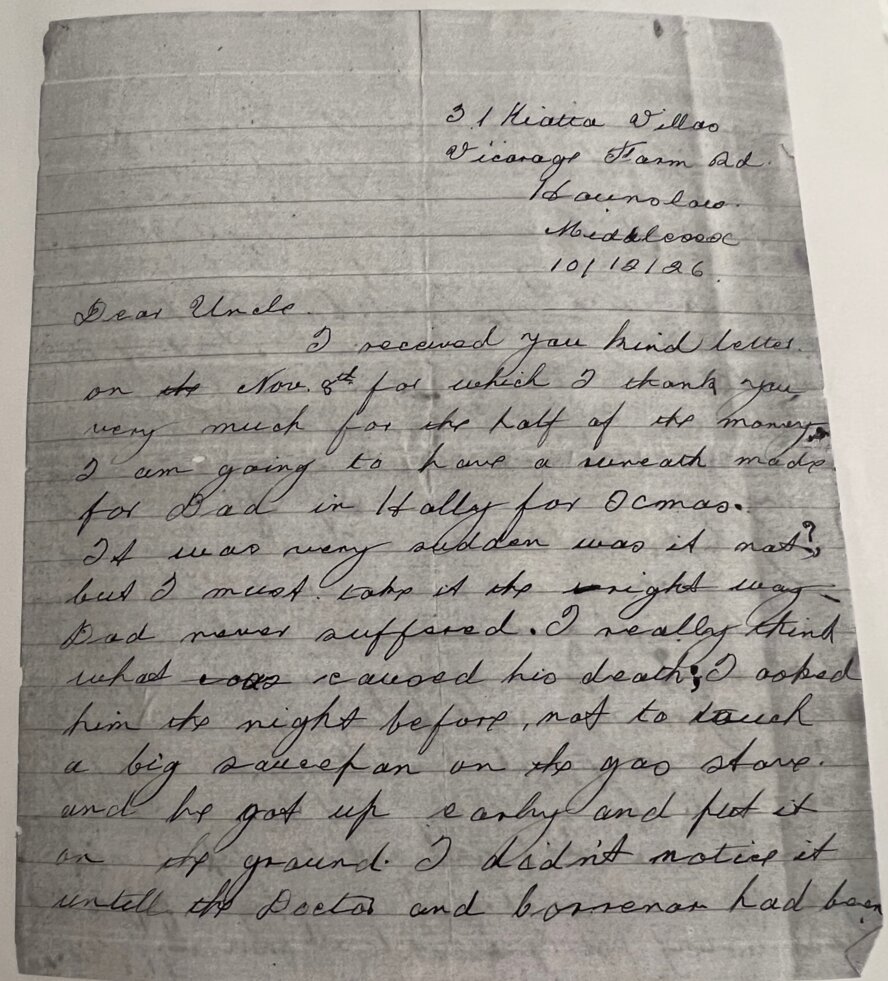 31 Kiatta Villas
Vicarage Farm Rd.
Hounslow.
Middlesex
10/12/26.
Dear Uncle.
I received you kind letter.
on the Nov. 8th for which I thank you
very much for the half of the money,
I am going to have a wreath made
for Dad in Holly for Xmas.
It was very sudden was it not?,
but I must take it the right way
Dad never suffered. I really think
what was caused his death; I asked
him the night before, not to touch
a big saucepan on the gas stove.
and he got up early and put it
on the ground. I didn't notice it
untell the Doctor and Correnar had been